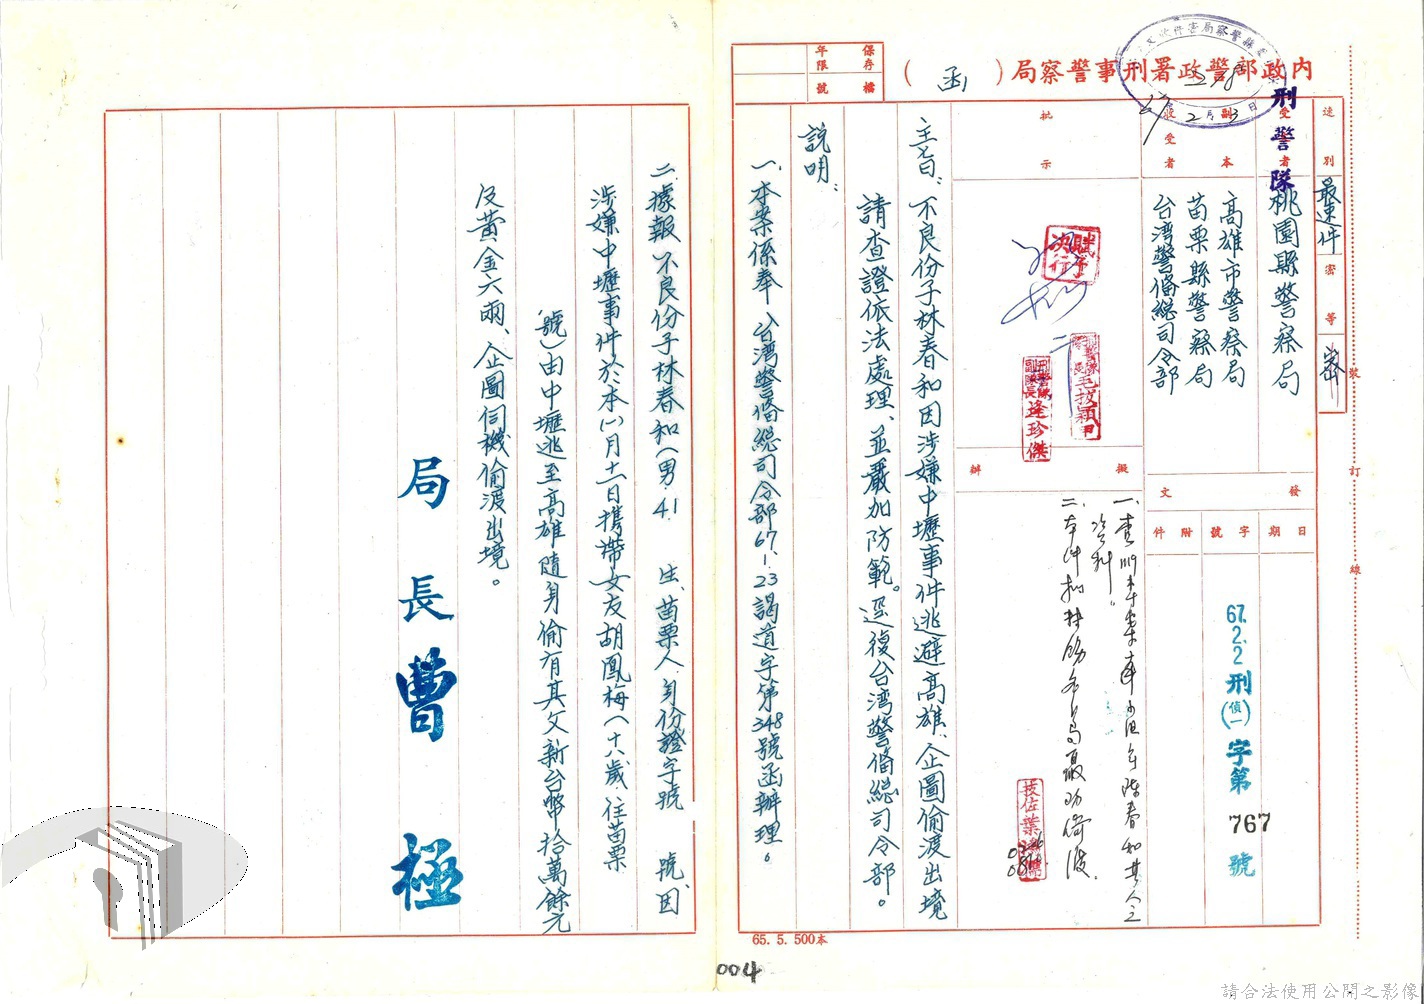 內政部警政署刑事警察局（函）
保存年限
檔號
速別
最速件
密等
密
裝
訂
線
受者
刑警隊
桃園縣警察局
副本收受者
高雄市警察局
苗栗縣警察局
台湾警备總司令部
2月3日
發文
日期
字號
附件
67.2.2刑(偵一)字第767號
批示
賦予決行
毛拔穎
逢珍傑
擬辦
資料。
主旨：不良份子林春和因涉嫌中壢事件逃避高雄、企圖偷渡出境
請查證依法處理、並嚴加防範。逕復台湾警备總司令部。
說明：
一、本案係奉、台湾警备總司令部67.1.23謁道字第348號函辦理。
65. 5. 500本
二、據報不良份子林春和（男.41.生、苗栗人.身份證字號 號、因
涉嫌中壢事件於本㈠月十一日携帶女友胡鳳梅（十八歲、住苗栗
號）由中壢逃至高雄隨身偷有其父新台幣拾萬餘元
及黃金六兩、企圖伺機偷渡出境。
局長曹極
004
請合法使用公開之影像